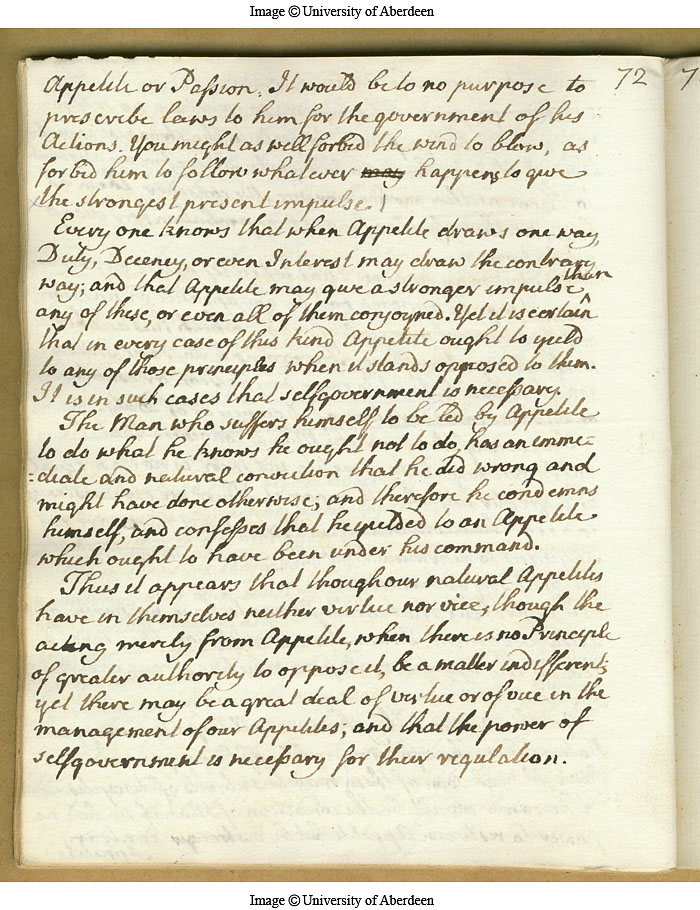 Image © University of Aberdeen
72
Appetite or Passion. It would be to no purpose to
prescribe laws to him for the government of his
Actions. You might as well forbid the wind to blow, as
forbid him to follow whatever may happens to give
the strongest present impulse.
Every one knows that when Appetite draws one way,
Duty, Decency, or even Interest may draw the contrary
way; and that Appetite may give a stronger impulse than
any of these, or even all of them conjoyned. Yet it is certain
that in every case of this kind Appetite ought to yield
to any of those principles when it stands opposed to them.
It is in such cases that selfgovernment is necessary.
The Man who suffers himself to be led by Appetite
to do what he knows he ought not to do, has an imme-
:diate and natural conviction that he did wrong and
might have done otherwise; and therefore he condemns
himself, and confesses that he yielded to an Appetite
which ought to have been under his command.
Thus it appears that though our natural Appetites
have in themselves neither virtue nor vice, though the
acting merely from Appetite, when there is no Principle
of greater authority to oppose it, be a matter indifferent;
yet there may be a great deal of virtue or of vice in the
management of our Appetites; and that the power of
selfgovernment is necessary for their regulation.
Image © University of Aberdeen